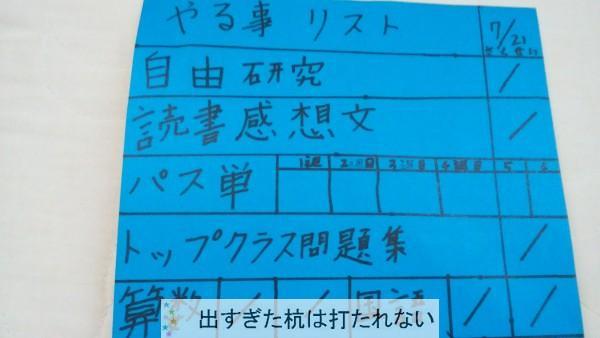 やる事リスト 7/21
自由研究 /
読書感想文 /
パス単 1週 2週目 3週目 4週目 5
トップクラス問題集 /
算数 / / 国語 / /
出すぎた杭は打たれない